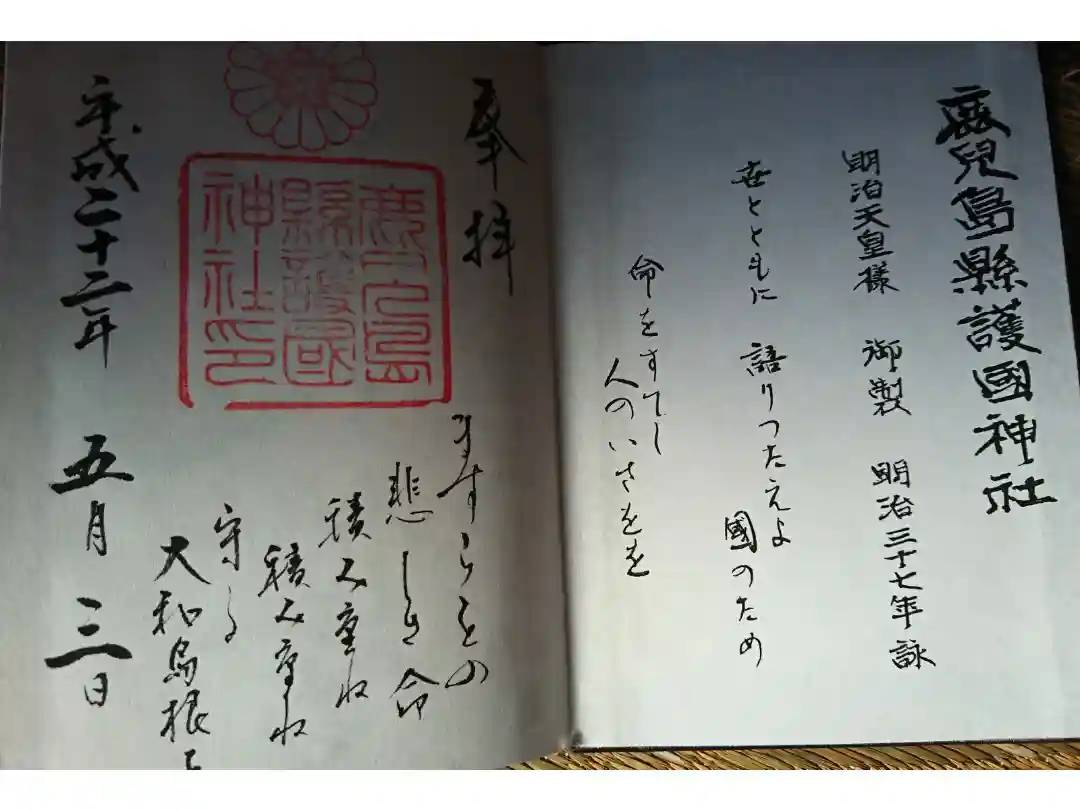 鹿兒島縣護國神社
明治天皇様 御製 明治三十七年詠
世とともに 語りつたえよ 國のため
命をすてし
人のいさをを
奉拝
鹿兒島
縣護國
神社印
ますらをの
悲しき命
積み重ね
積み重ね
守る
大和島根を
平成二十二年 五月 三日